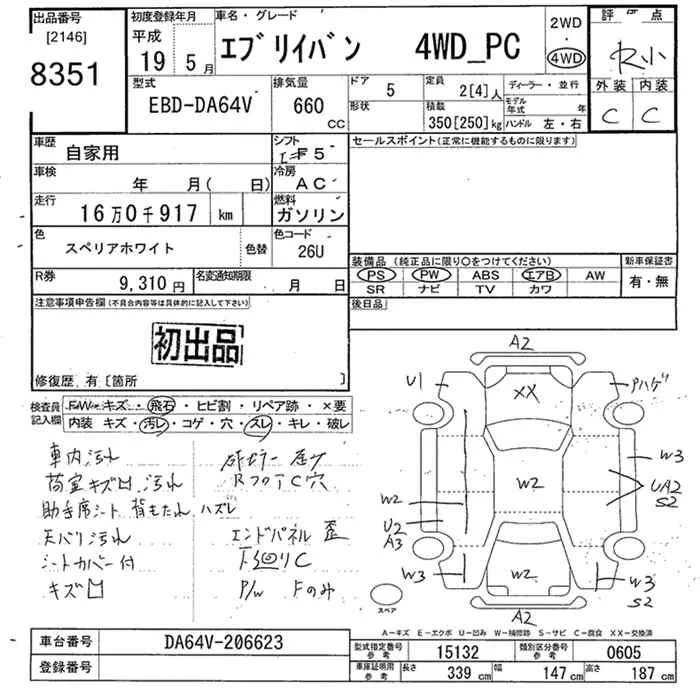 出品番号
[2146]
8351
初度登録年月
平成
19年 5月
車名・グレード
エブリイバン 4WD_PC
2WD
・
4WD
評 点
R小
外装 内装
C C
型式
EBD-DA64V
排気量
660 CC
ドア
5
形状
定員
2[4]人
積載
350[250]kg
ディーラー・並行
モデル年式 年
ハンドル 左・右
車歴
自家用
シフト
F5
車検
年 月( 日)
冷房
AC
走行
16万0千917 km
燃料
ガソリン
色
スペリアホワイト
色替
色コード
26U
R券
9,310円
名変通知期限
月 日
セールスポイント(正常に機能するものに限ります)
装備品 (純正品に限り○をつけてください)
PS PW ABS エアB AW
SR ナビ TV カワ
新車保証書
有・無
後日品
注意事項申告欄(不具合内容等は具体的に記入して下さい)
初出品
修復歴.有〔箇所 〕
検査員記入欄
F/W キズ・飛石・ヒビ割・リペア跡・×要
内装 キズ・汚レ・コゲ・穴・スレ・キレ・破レ
車内汚れ
荷室キズ凹 汚れ
助手席シート 背もたれ ハズレ
天バリ汚れ
シートカバー付
キズ凹
RフロアC穴
エンドパネル 歪
下回りC
P/W Fのみ
A2
U1
XX
Pハゲ
W3
W2
W2
UA2
S2
U2
A3
W3
W2
W3
S2
A2
スペア
A-キズ E-エクボ U-凹み W-補修跡 S-サビ C-腐食 XX-交換済
車台番号
DA64V-206623
登録番号
型式指定番号 参考
15132
類別区分番号 参考
0605
車庫証明用 参考
長さ 339 cm
幅 147 cm
高さ 187 cm